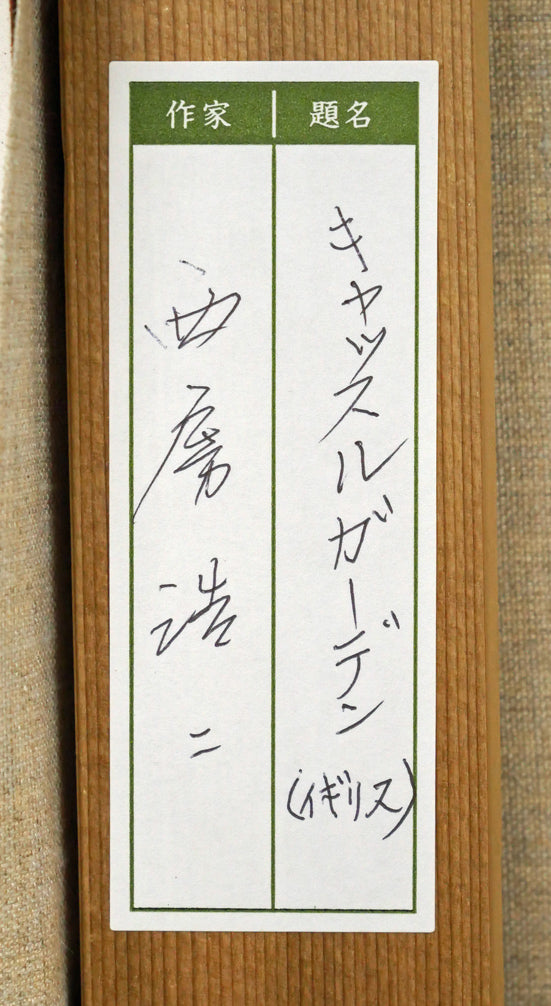 題名
キャッスルガーデン
(イギリス)
作家
西房浩二